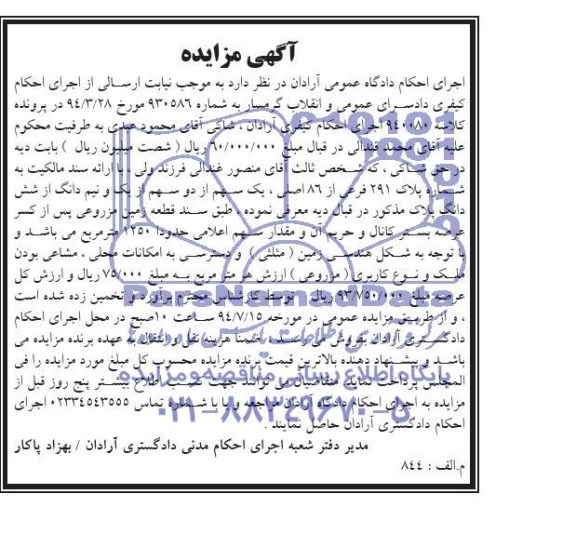 آگهی مزایده
اجرای احکام دادگاه عمومی آرادان در نظر دارد به موجب نیابت ارسالی از اجرای احکام
کیفری دادسرای عمومی و انقلاب گرمسار به شماره ۹۳۰۵۸۶ مورخ ۹۴/۳/۲۸ در پرونده
کلاسه ۹۴۰۰۸۰ اجرای احکام کیفری آرادان ، شاکی آقای محمود عبدی به طرفیت محکوم
علیه آقای محمد قندالی در قبال مبلغ ۶۰/۰۰۰/۰۰۰ ریال ( شصت میلیون ریال ) بابت دیه
در حق شاکی ، که شخص ثالث آقای منصور قندالی فرزند ولی ، با ارائه سند مالکیت به
شماره پلاک ۲۹۱ فرعی از ۸۶ اصلی ، یک سهم از دو سهم از یک و نیم دانگ از شش
دانگ پلاک مذکور در قبال دیه معرفی نموده ، طبق سند قطعه زمین مزروعی پس از کسر
عرصه بستر کانال و حریم آن و مقدار سهم اعلامی حدودا ۱۲۵۰ مترمربع می باشد و
با توجه به شکل هندسی زمین ( مثلثی ) و دسترسی به امکانات محلی ، مشاعی بودن
ملک و نوع کاربری ( مزروعی ) ارزش هر متر مربع به مبلغ ۷۵/۰۰۰ ریال و ارزش کل
عرصه مبلغ ۹۳/۷۵۰/۰۰۰ ریال توسط کارشناس محترم برآورد و تخمین زده شده است
، و از طریق مزایده عمومی در مورخه ۹۴/۷/۱۵ ساعت ۱۰صبح در محل اجرای احکام
دادگستری آرادان بفروش می رسد ، ضمنا هزینه نقل و انتقال به عهده برنده مزایده می
باشد و پیشنهاد دهنده بالاترین قیمت برنده مزایده محسوب کل مبلغ مورد مزایده را فی
المجلس پرداخت نماید. متقاضیان می توانند جهت کسب اطلاع بیشتر پنج روز قبل از
مزایده به اجرای احکام دادگاه آرادان مراجعه و یا با شماره تماس ۰۲۳۳۴۵۴۳۵۵۵ اجرای
احکام دادگستری آرادان حاصل نمایند .
مدیر دفتر شعبه اجرای احکام مدنی دادگستری آرادان / بهزاد پاکار
م.الف : ۸٤٤
ParsNamadData
پایگاه اطلاع رسانی مناقصه و مزایده
۰۲۱-۸۸۳٤۹۶۷۰-۵